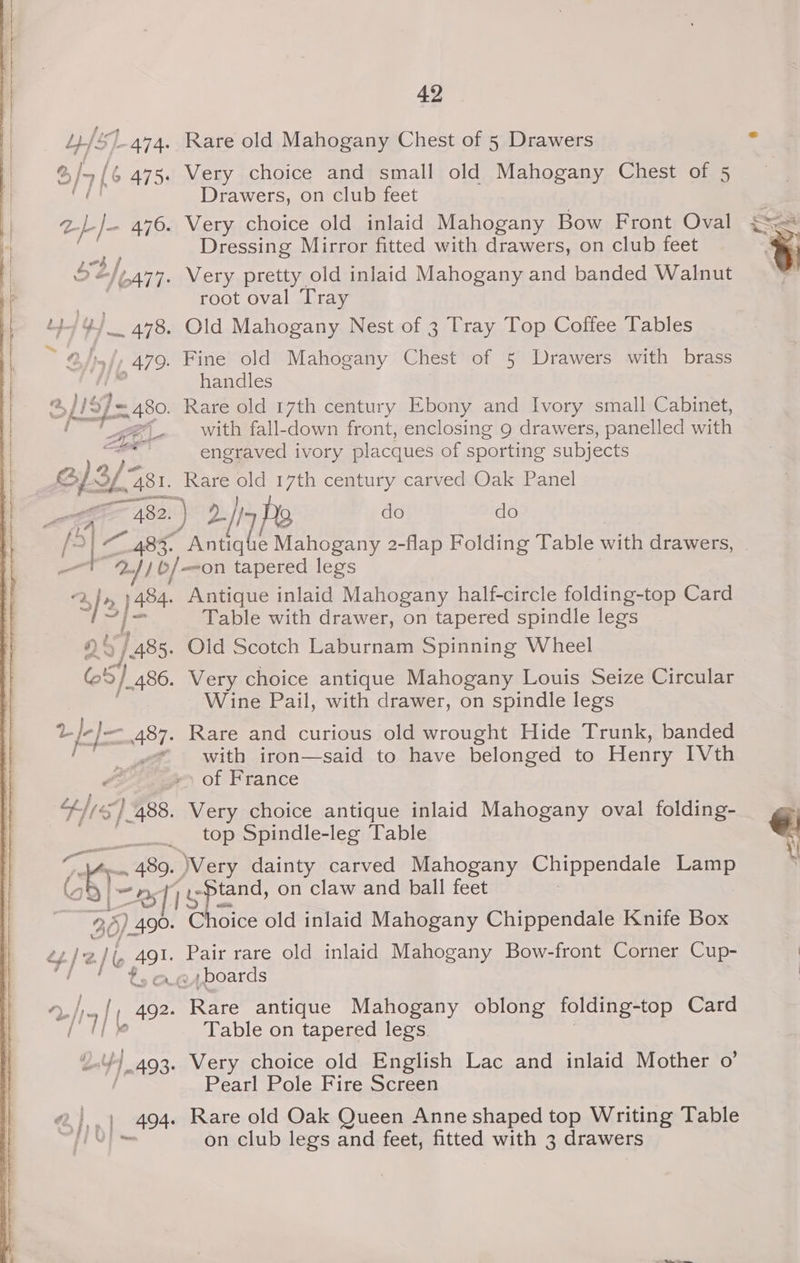 42
474. Rare old Mahogany Chest of 5 Drawers
475. Very choice and small old Mahogany Chest of 5
Drawers, on club feet
476. Very choice old inlaid Mahogany Bow Front Oval
Dressing Mirror fitted with drawers, on club feet
477. Very pretty old inlaid Mahogany and banded Walnut
root oval Tray
478. Old Mahogany Nest of 3 Tray Top Coffee Tables
479. Fine old Mahogany Chest of 5 Drawers with brass
handles
480. Rare old 17th century Ebony and Ivory small Cabinet,
with fall-down front, enclosing 9 drawers, panelled with
engraved ivory placques of sporting subjects
481. Rare old 17th century carved Oak Panel
482. Do do do
483. Antique Mahogany 2-flap Folding Table with drawers,
on tapered legs
484. Antique inlaid Mahogany half-circle folding-top Card
Table with drawer, on tapered spindle legs
485. Old Scotch Laburnam Spinning Wheel
486. Very choice antique Mahogany Louis Seize Circular
Wine Pail, with drawer, on spindle legs
487. Rare and curious old wrought Hide Trunk, banded
with iron—said to have belonged to Henry IVth
of France
488. Very choice antique inlaid Mahogany oval folding-
top Spindle-leg Table
489. Very dainty carved Mahogany Chippendale Lamp
Stand, on claw and ball feet
490. Choice old inlaid Mahogany Chippendale Knife Box
491. Pair rare old inlaid Mahogany Bow-front Corner Cup-
boards
492. Rare antique Mahogany oblong folding-top Card
Table on tapered legs
493. Very choice old English Lac and inlaid Mother o'
Pearl Pole Fire Screen
494. Rare old Oak Queen Anne shaped top Writing Table
on club legs and feet, fitted with 3 drawers